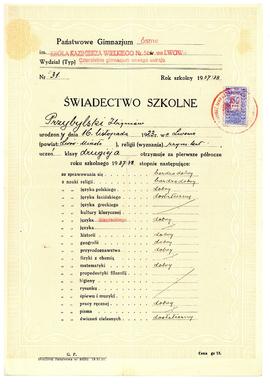 Państwowe Gimnazjum
im. KRÓLA KAZIMIERZA WIELKIEGO Nr. we LWOWIE
Wydział (Typ) Czteroletnie gimnazjum nowego ustroju
Nr. 31 Rok szkolny 1937/38
ŚWIADECTWO SZKOLNE
Przybylski Zbigniew
urodzony dnia 16 listopada 1923 we Lwowie
powiat Lwów-miasto, religii (wyznania) rzym. kat.
uczeń klasy drugiej otrzymuje za pierwsze półrocze
roku szkolnego 1937/38 stopnie następujące:
ze sprawowania się bardzo dobry
z nauki religii bardzo dobry
języka polskiego dobry
języka łacińskiego dostateczny
języka greckiego
kultury klasycznej
języka niemieckiego dobry
języka
historii dobry
geografii dobry
przyrodoznawstwa dobry
fizyki z chemią
matematyki dobry
propedeutyki filozofii
higieny
rysunku
śpiewu i muzyki dobry
pracy ręcznej dobry
pisma
ćwiczeń cielesnych dostateczny
G. P.
Cena gr 15.